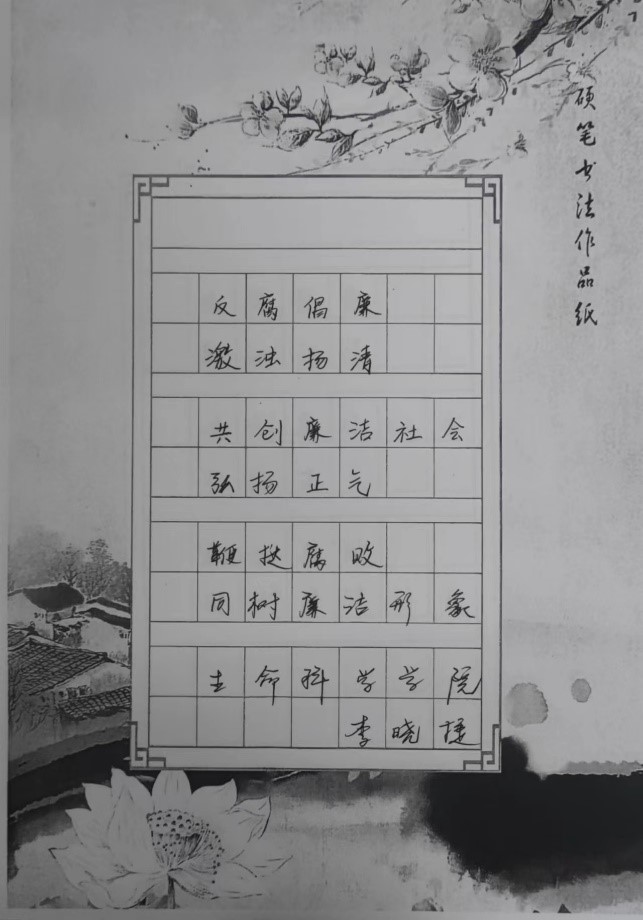 硬笔书法作品纸
反腐倡廉
激浊扬清
共创廉洁社会
弘扬正气
鞭挞腐败
同树廉洁形象
生命科学学院
李晓捷